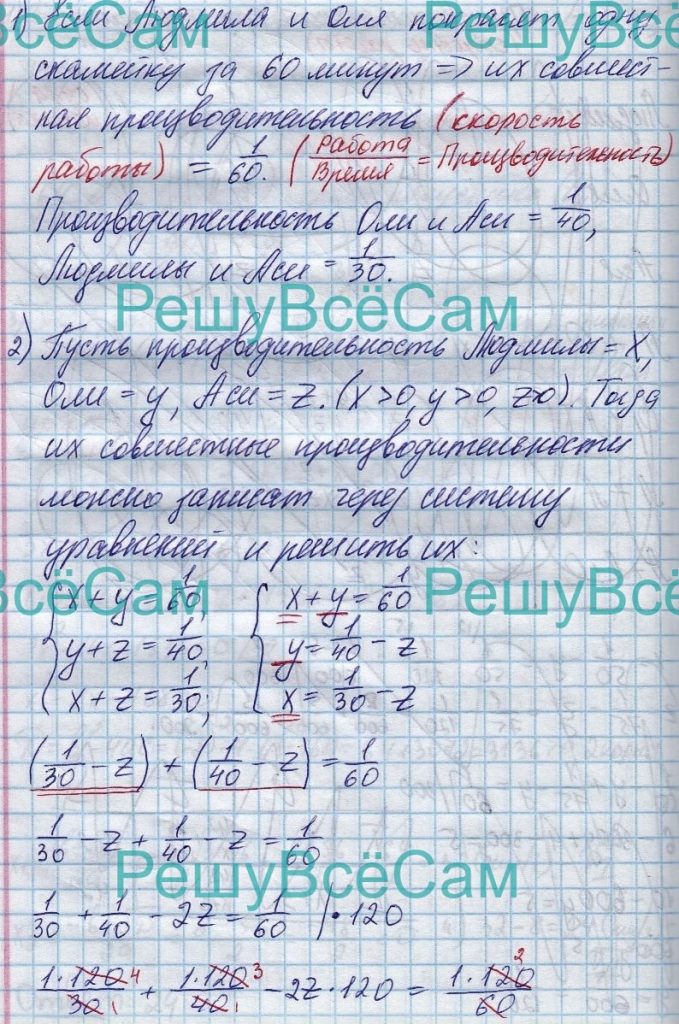 1) Если Людмила и Оля покрасят одну
скамейку за 60 минут => их совмест-
ная производительность (скорость
работы) = 1/60. (Работа/Время = Производительность)
Производительность Оли и Аси = 1/40,
Людмилы и Аси = 1/30.
РешуВсёСам
2) Пусть производительность Людмилы = x,
Оли = y, Аси = z. (x>0, y>0, z>0). Тогда
их совместные производительности
можно записат через систему
уравнений и решить их:
{ x + y = 1/60, { x + y = 1/60
y + z = 1/40, y = 1/40 - z
x + z = 1/30; x = 1/30 - z
(1/30 - z) + (1/40 - z) = 1/60
1/30 - z + 1/40 - z = 1/60
РешуВсёСам
1/30 + 1/40 - 2z = 1/60 | • 120
1·120 4/30 1 + 1·120 3/40 1 - 2z·120 = 1·120 2/60